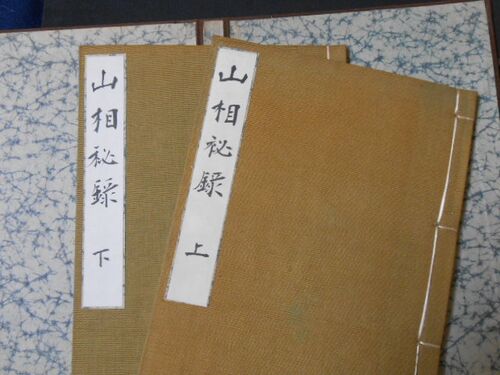 山相秘録 上
山相秘録 下